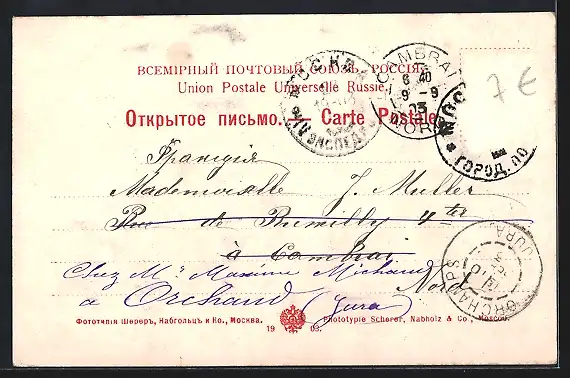 ВСЕМІРНЫЙ ПОЧТОВЫЙ СОЮЗЪ. РОССІЯ.
Union Postale Universelle Russie.
Открытое письмо. — Carte Postale.
МОСКВА
CAMBRAI
6 40
9 -9
03
NORD
7€
МОС
ГОРОД. ПО
Франція
Mademoiselle J. Muller
Rue de Rumilly 4ter
à Cambrai
Nord
Chez Mr Maxime Michaud
a Orchand (Jura)
ORCHAMPS
JURA
10
Фототипія Шереръ, Набгольцъ и Ко., Москва.
19 03.
Phototypie Scherer, Nabholz & Co., Moscou.